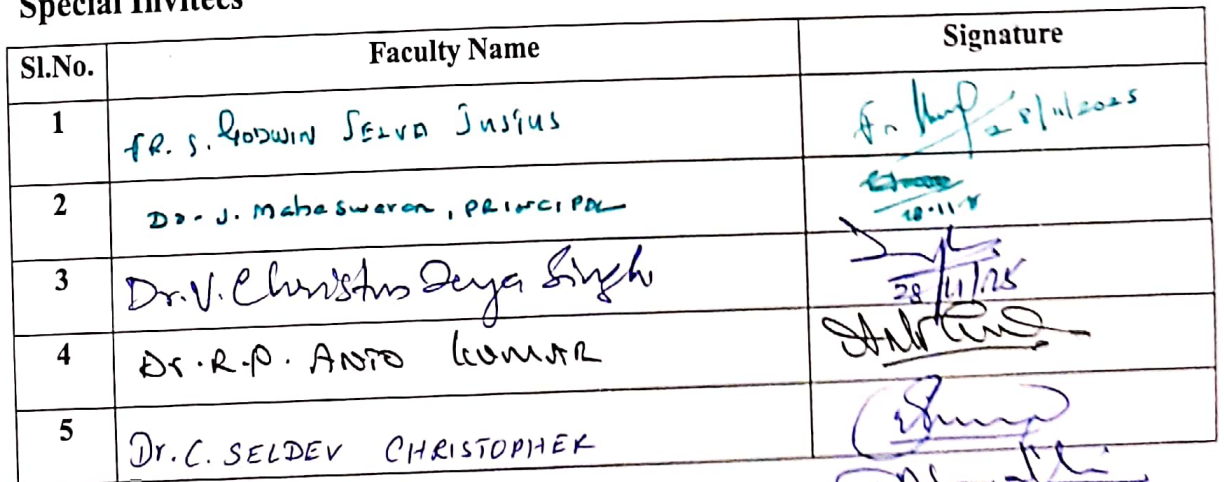 Special Invitees
Sl.No. Faculty Name Signature
1 FR. S. GODWIN SELVA JUSTUS 28/11/2025
2 Dr. J. Maheswaran, PRINCIPAL
3 Dr. V. Christus Jeya Singh 28/11/25
4 Dr. R.P. ANTO KUMAR
5 Dr. C. SELDEV CHRISTOPHER